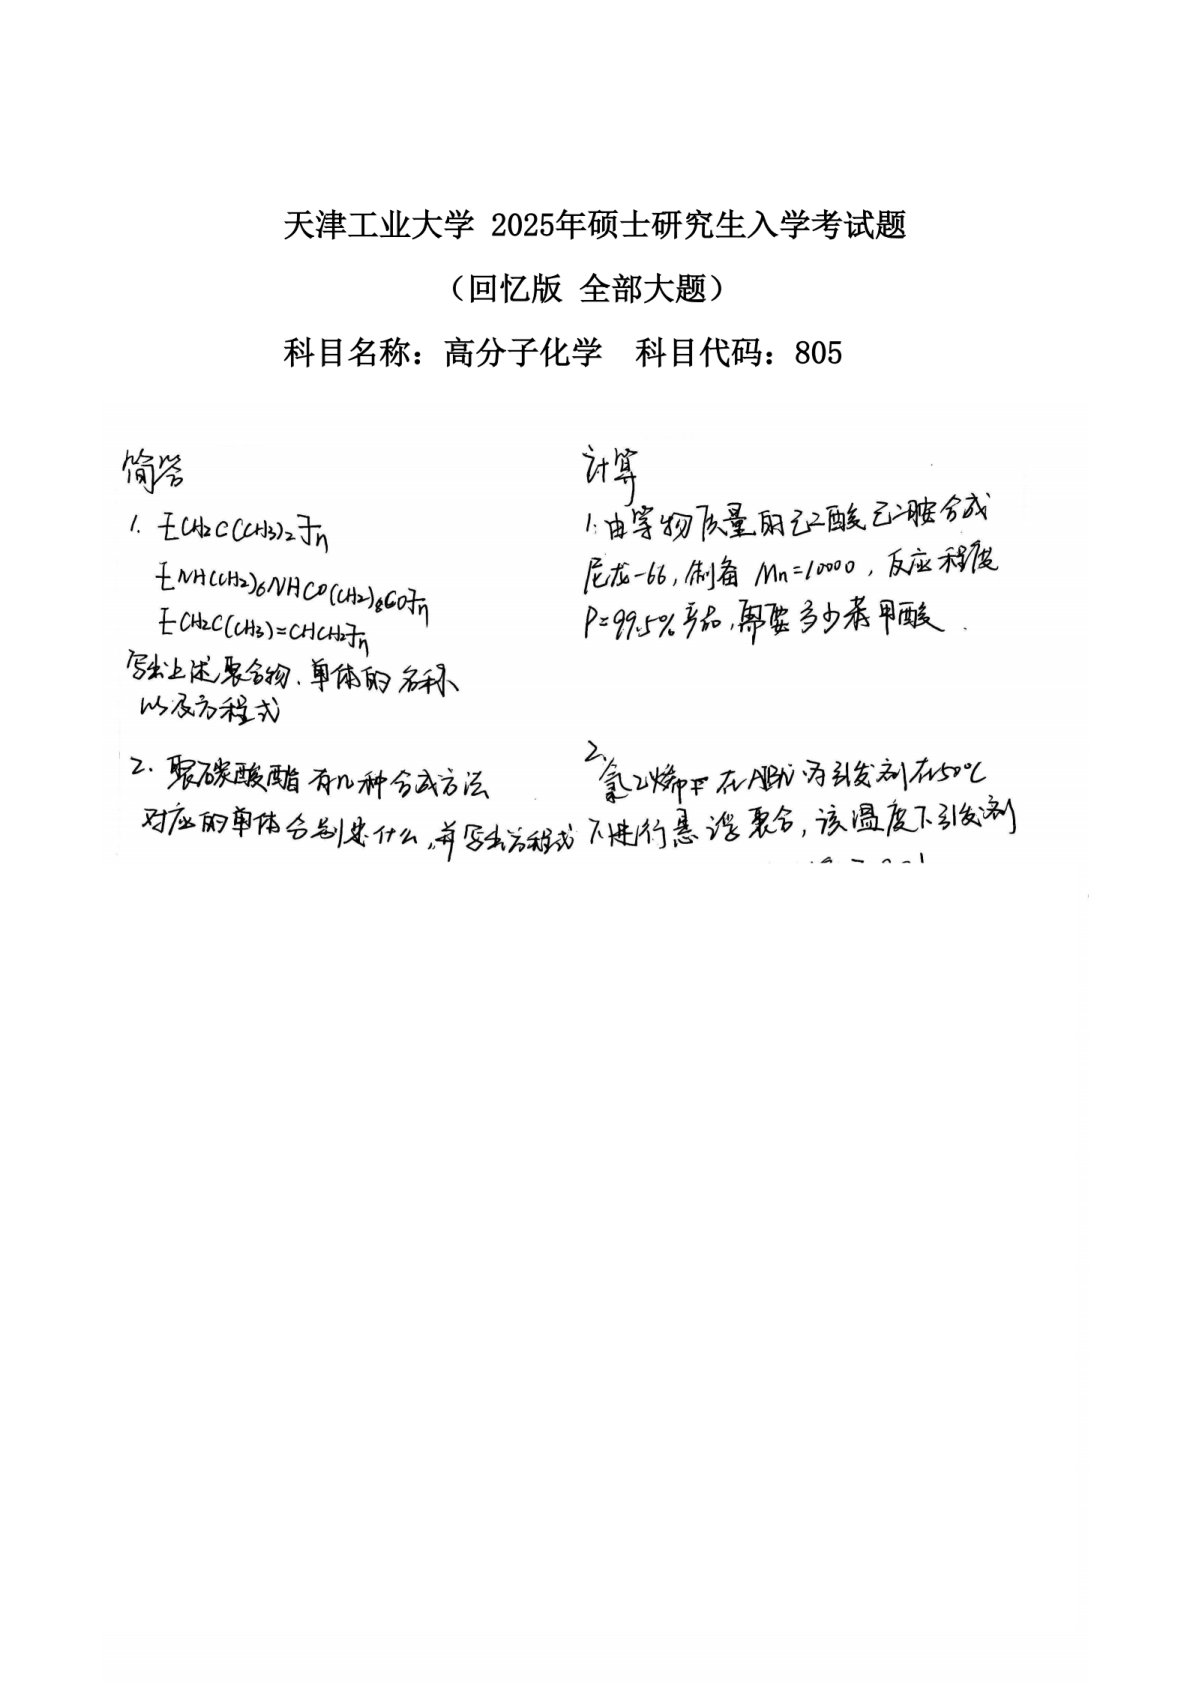 天津工业大学 2025年硕士研究生入学考试题
（回忆版 全部大题）
科目名称：高分子化学 科目代码：805
简答
1. [CH2C(CH3)2]n
[NH(CH2)6NHCO(CH2)8CO]n
[CH2C(CH3)=CHCH2]n
写出上述聚合物、单体的名称
以及方程式
2. 聚碳酸酯有几种合成方法
对应的单体分别是什么,并写出方程式
计算
1. 由等物质量的己二酸己二胺合成
尼龙-66, 制备 Mn=10000, 反应程度
P=99.5%产品,需要多少苯甲酸.
2. 氯乙烯中在AIBN为引发剂在50℃
下进行悬浮聚合,该温度下引发剂